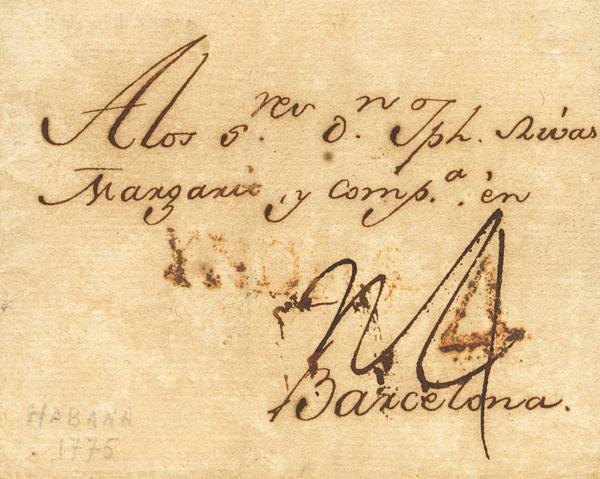 A los S.res D.n Jph. Rivas
Margarit, y Comp.a en
YNDIAS
Barcelona.
HABANA
1775